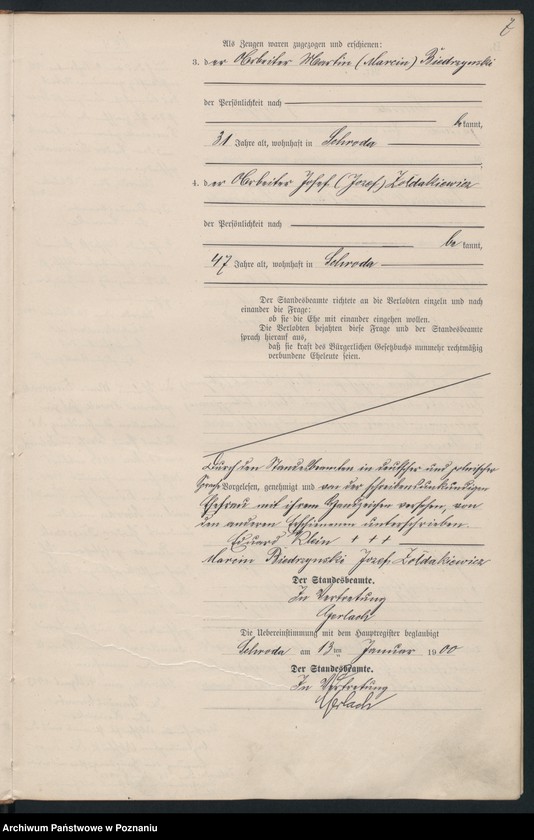 7
Als Zeugen waren zugezogen und erschienen:
3. der Arbeiter Martin (Marcin) Biedrzynski
der Persönlichkeit nach
bekannt,
31 Jahre alt, wohnhaft in Schroda
4. der Arbeiter Josef (Jozef) Zoldakiewicz
der Persönlichkeit nach
bekannt,
47 Jahre alt, wohnhaft in Schroda
Der Standesbeamte richtete an die Verlobten einzeln und nach
einander die Frage:
ob sie die Ehe mit einander eingehen wollen.
Die Verlobten bejahten diese Frage und der Standesbeamte
sprach hierauf aus,
daß sie kraft des Bürgerlichen Gesetzbuchs nunmehr rechtmäßig
verbundene Eheleute seien.
Durch den Standesbeamten in deutscher und polnischer
Sprache Vorgelesen, genehmigt und von der schreibensunkundigen
Ehefrau mit ihrem Handzeichen versehen, von
den anderen Erschienenen unterschrieben.
Eduard Klein + + +
Marcin Biedrzynski Jozef Zoldakiewicz
Der Standesbeamte.
In Vertretung
Gerlach
Die Uebereinstimmung mit dem Hauptregister beglaubigt
Schroda am 13ten Januar 1900
Der Standesbeamte.
In Vertretung
Gerlach
Archiwum Państwowe w Poznaniu